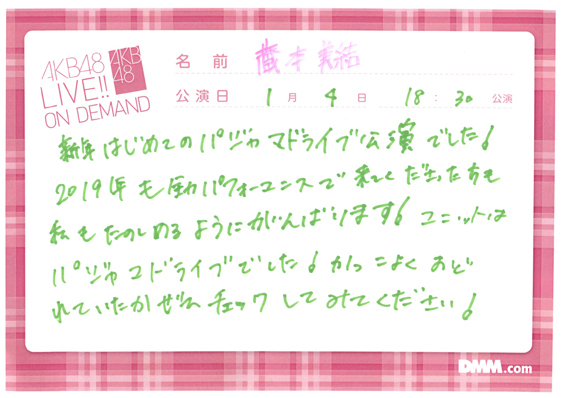 AKB48
LIVE!!
ON DEMAND
AKB
48
名前 蔵本美結
公演日 1月4日 18:30公演
新年はじめてのパジャマドライブ公演でした!
2019年も全力パフォーマンスで来てくださった方も
私もたのしめるようにがんばります!ユニットは
パジャマドライブでした!かっこよくおど
れていたかぜひチェックしてみてください!
DMM.com